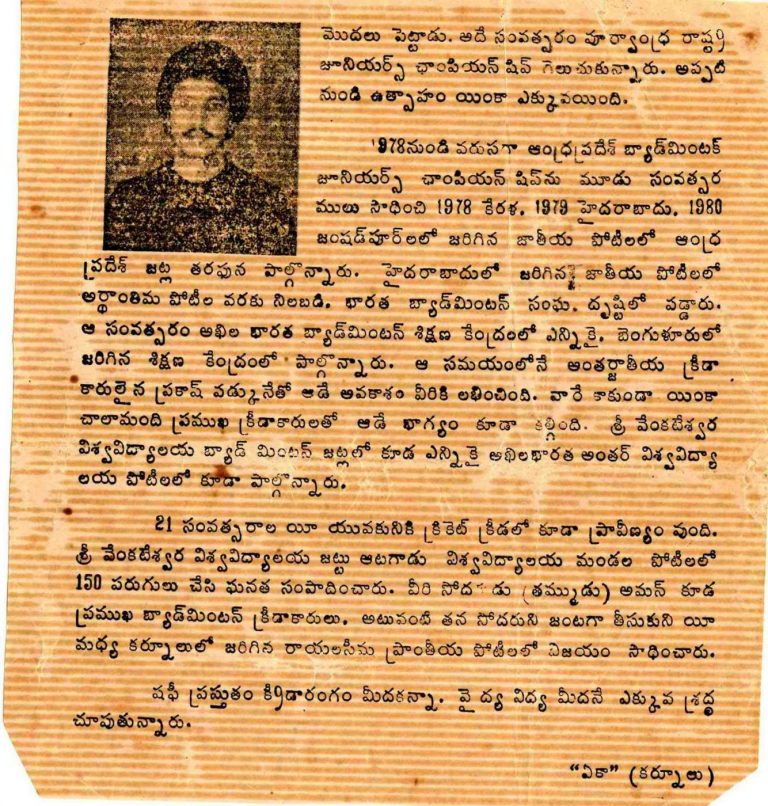 మొదలు పెట్టాడు. అదే సంవత్సరం పూర్వాంధ్ర రాష్ట్ర
జూనియర్స్ ఛాంపియన్ షిప్ గెలుచుకున్నారు. అప్పటి
నుండి ఉత్సాహం యింకా ఎక్కువయింది.
1978నుండి వరుసగా ఆంధ్రప్రదేశ్ బ్యాడ్‌మింటన్
జూనియర్స్ ఛాంపియన్ షిప్‌ను మూడు సంవత్సర
ములు సాధించి 1978 కేరళ, 1979 హైదరాబాదు, 1980
జంషడ్‌పూర్‌లలో జరిగిన జాతీయ పోటీలలో ఆంధ్ర
ప్రదేశ్ జట్ల తరఫున పాల్గొన్నారు. హైదరాబాదులో జరిగిన జాతీయ పోటీలలో
అర్థాంతిమ పోటీల వరకు నిలబడి, భారత బ్యాడ్‌మింటన్ సంఘ, దృష్టిలో పడ్డారు.
ఆ సంవత్సరం అఖిల భారత బ్యాడ్‌మింటన్ శిక్షణ కేంద్రంలో ఎన్నికై, బెంగుళూరులో
జరిగిన శిక్షణ కేంద్రంలో పాల్గొన్నారు. ఆ సమయంలోనే ఆంతర్జాతీయ క్రీడా
కారులైన ప్రకాష్ పడ్కునేతో ఆడే అవకాశం వీరికి లభించింది. వారే కాకుండా యింకా
చాలామంది ప్రముఖ క్రీడాకారులతో ఆడే భాగ్యం కూడా కల్గింది. శ్రీ వేంకటేశ్వర
విశ్వవిద్యాలయ బ్యాడ్ మింటన్ జట్లలో కూడ ఎన్నికై అఖిలభారత అంతర్ విశ్వవిద్యా
లయ పోటీలలో కూడా పాల్గొన్నారు.
21 సంవత్సరాల యీ యువకునికి క్రికెట్ క్రీడలో కూడా ప్రావీణ్యం వుంది.
శ్రీ వేంకటేశ్వర విశ్వవిద్యాలయ జట్టు ఆటగాడు విశ్వవిద్యాలయ మండల పోటీలలో
150 పరుగులు చేసి ఘనత సంపాదించారు. వీరి సోదరుడు (తమ్ముడు) అమన్ కూడ
ప్రముఖ బ్యాడ్‌మింటన్ క్రీడాకారులు. అటువంటి తన సోదరుని జంటగా తీసుకుని యీ
మధ్య కర్నూలులో జరిగిన రాయలసీమ ప్రాంతీయ పోటీలలో విజయం సాధించారు.
షఫీ ప్రస్తుతం కీ9డారంగం మీదకన్నా. వైద్య నిద్య మీదనే ఎక్కువ శ్రద్ధ
చూపుతున్నారు.
“ఏకా” (కర్నూలు)